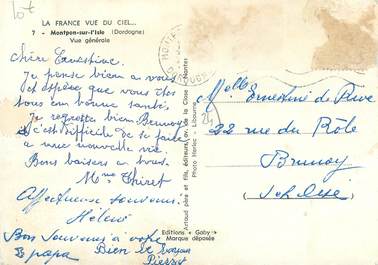 LA FRANCE VUE DU CIEL...
7 - Montpon-sur-l'Isle (Dordogne)
Vue générale
chère Ernestine.
Je pense bien a vous
et espère que vous êtes
tous en bonne santé.
Je regrette bien Brunoy
c'est difficile de se faire
a une nouvelle vie.
Bons baisers a tous.
Mme Thiret
Affectueux souvenirs
Hélène
Bon Souvenir a votre
papa
Bien le
Pierrot
Artaud père et fils, éditeurs, av. de la Close - Nantes
Photo Heurlec - Libourne
Editions "Gaby"
Marque déposée
Melle Ernestine de Rive
22 rue du Rôle
Brunoy
S et Oise